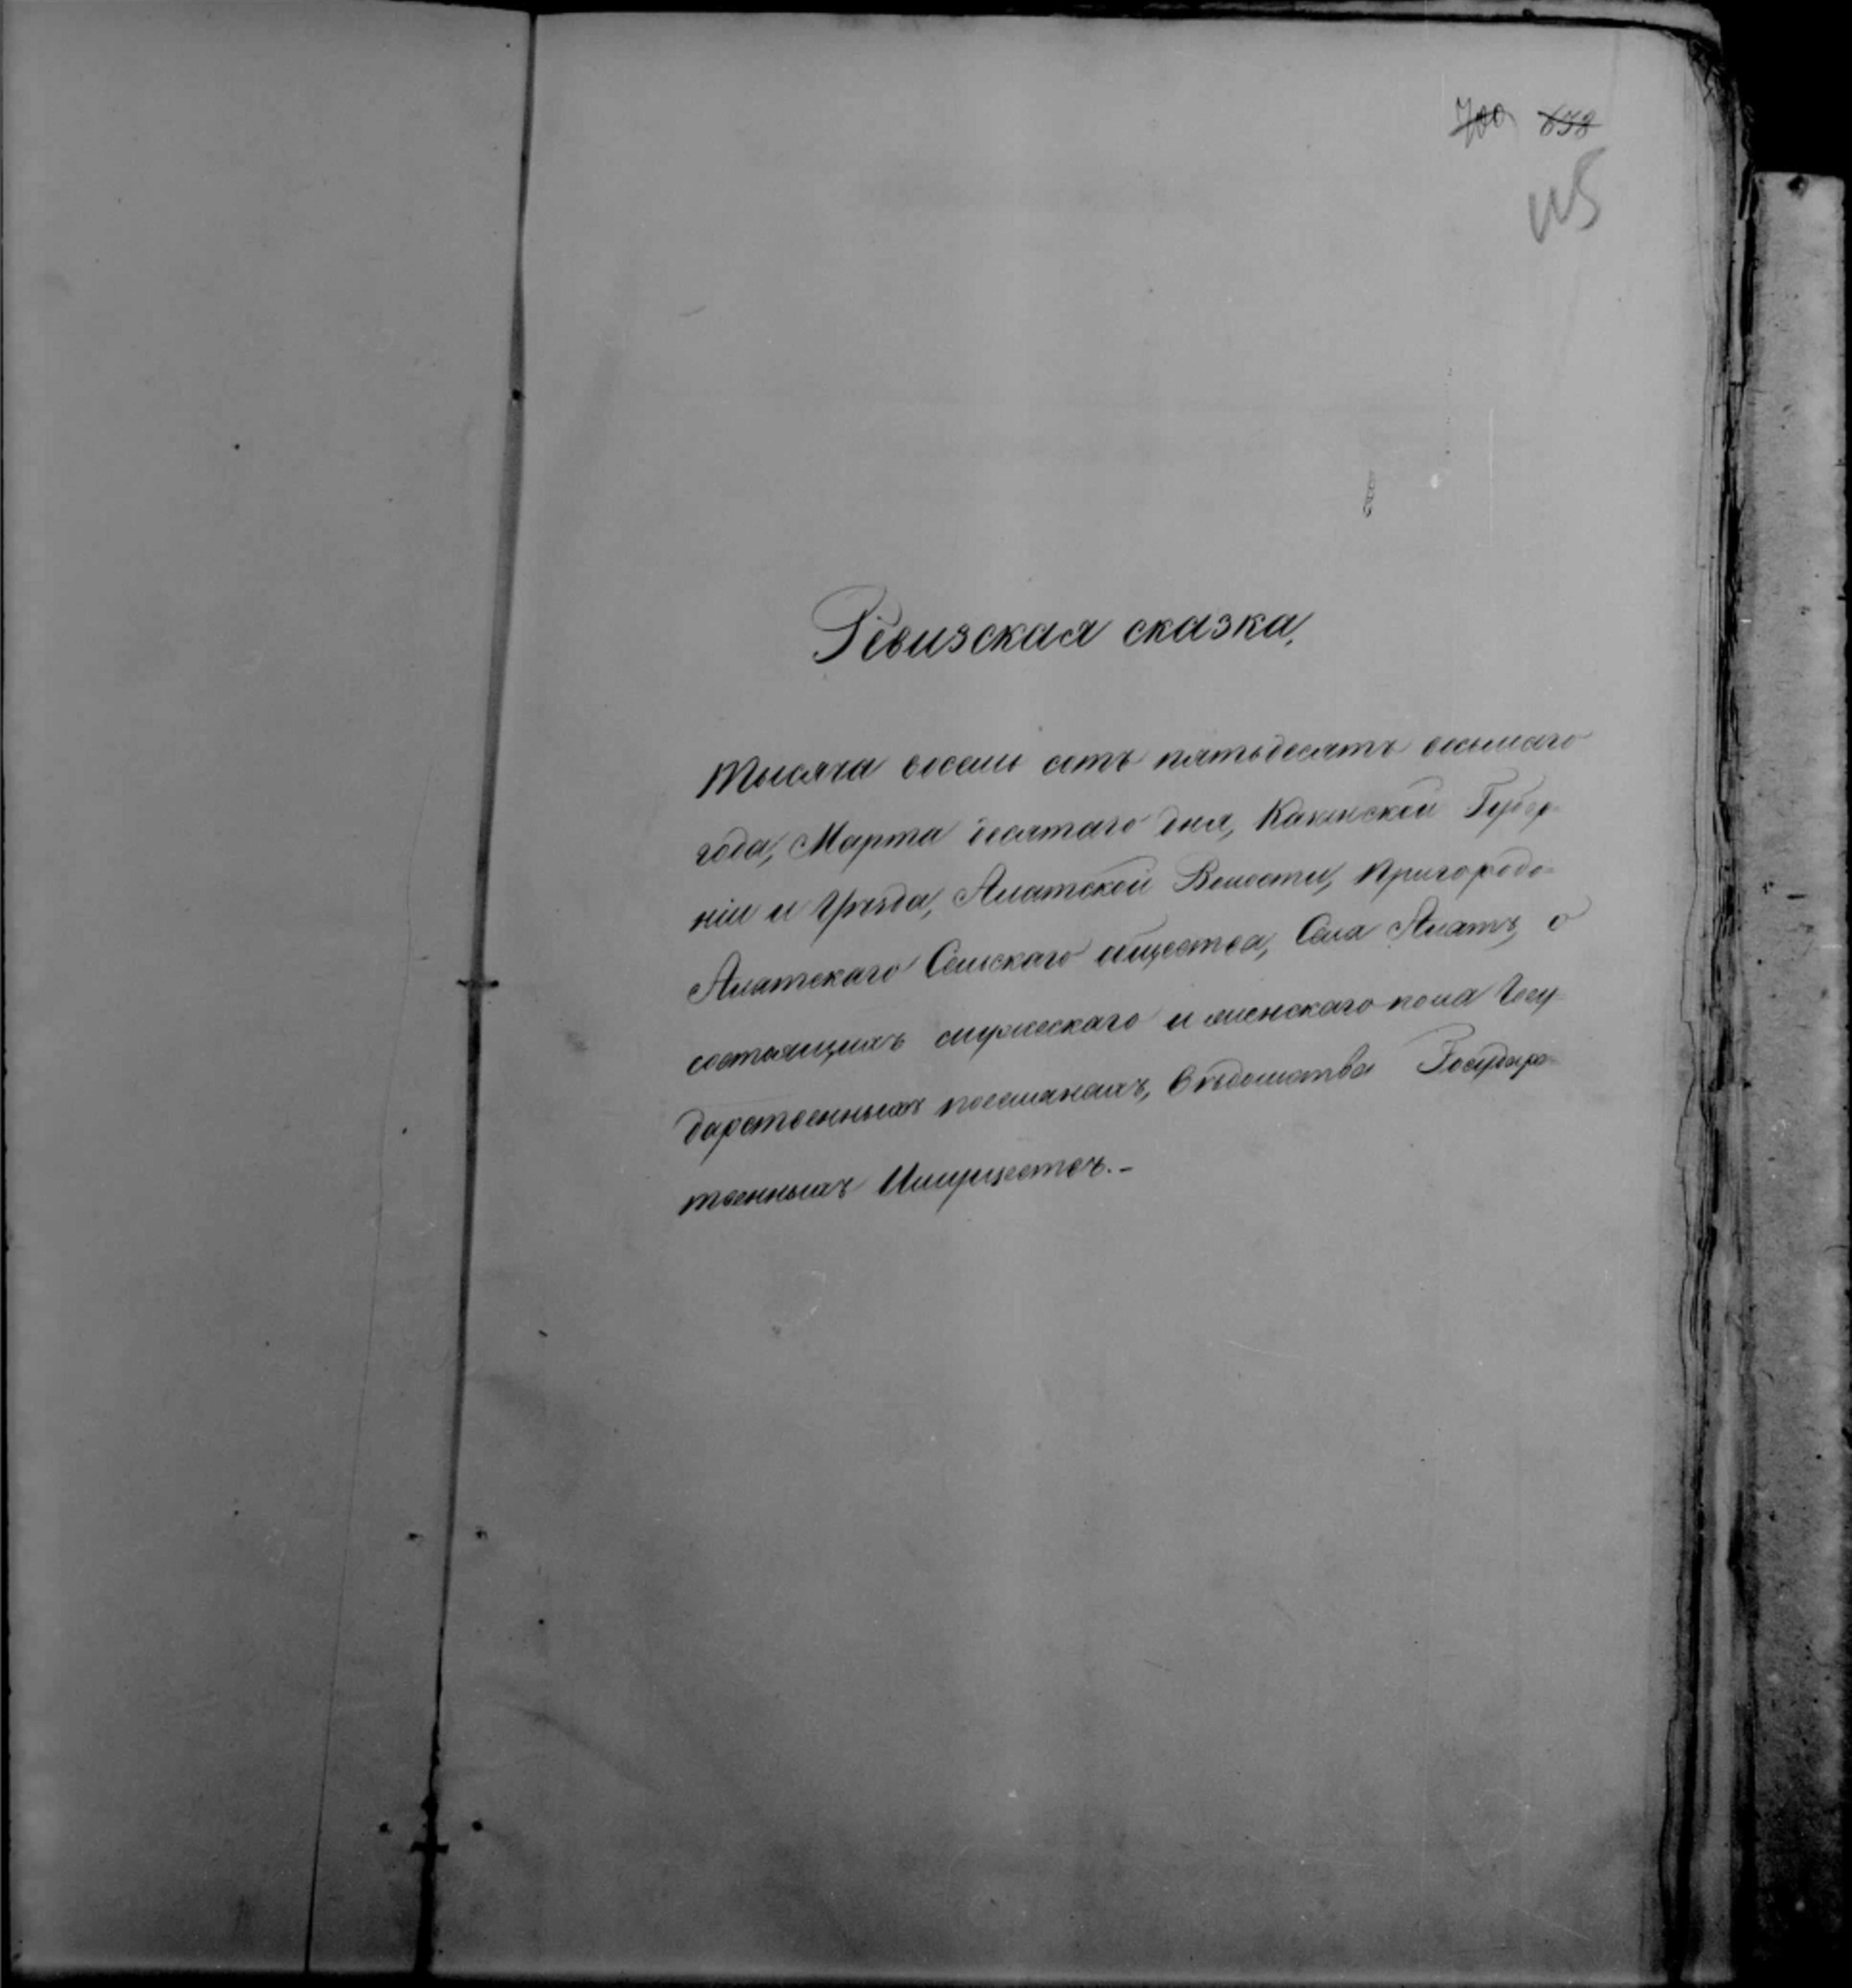 700 638
115
Ревизская сказка,
Тысяча восемь сотъ пятьдесятъ восьмаго
года, Марта десятаго дня, Казанской Губер-
ніи и Уѣзда, Алатской Волости, Пригородо-
Алатскаго Сельскаго общества, Села Алатъ, о
состоящихъ мужескаго и женскаго пола Госу-
дарственныхъ поселянахъ, Вѣдомства Государс-
твенныхъ Имуществъ.-